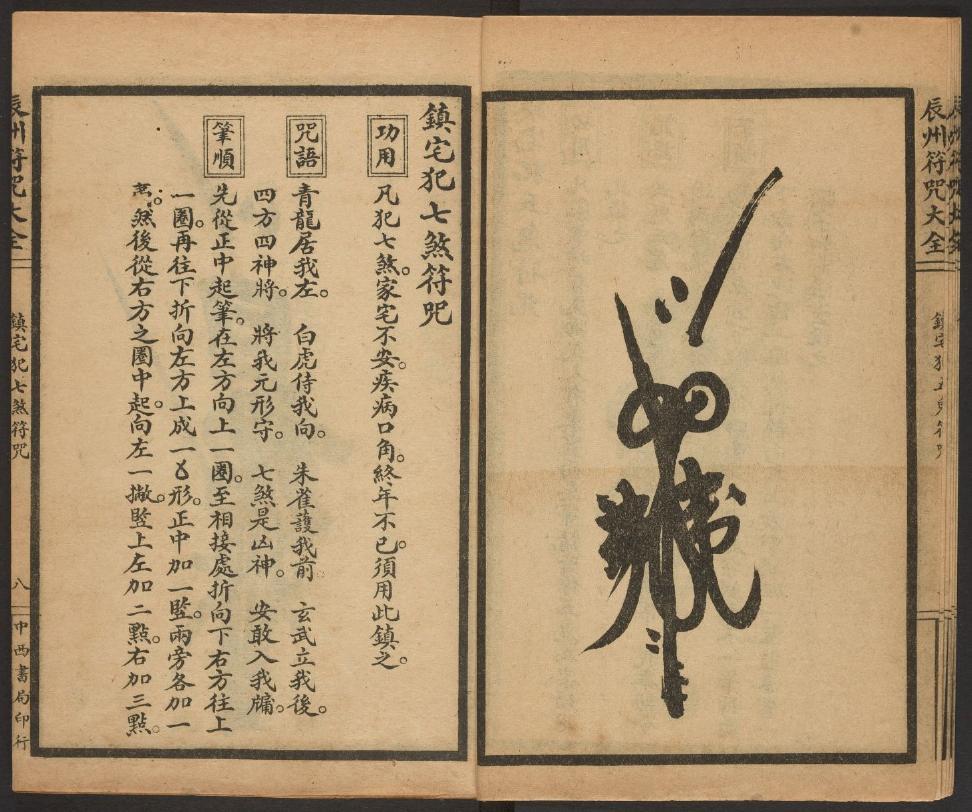 辰州符咒大全
鎮宅犯七煞符咒
功用
凡犯七煞。家宅不安。疾病口角。終年不已。須用此鎮之。
咒語
青龍居我左。 白虎侍我向。 朱雀護我前。 玄武立我後。
四方四神將。 將我元形守。 七煞是凶神。 安敢入我牖。
筆順
先從正中起筆。在左方向上一圈。至相接處折向下右方往上
一圈。再往下折向左方上成一形。正中加一竪。兩旁各加一
然後從右方之圈中。起向左一撇。竪上左加二點。右加三點。
辰州符咒大全
鎮宅犯七煞符咒
八
中西書局印行